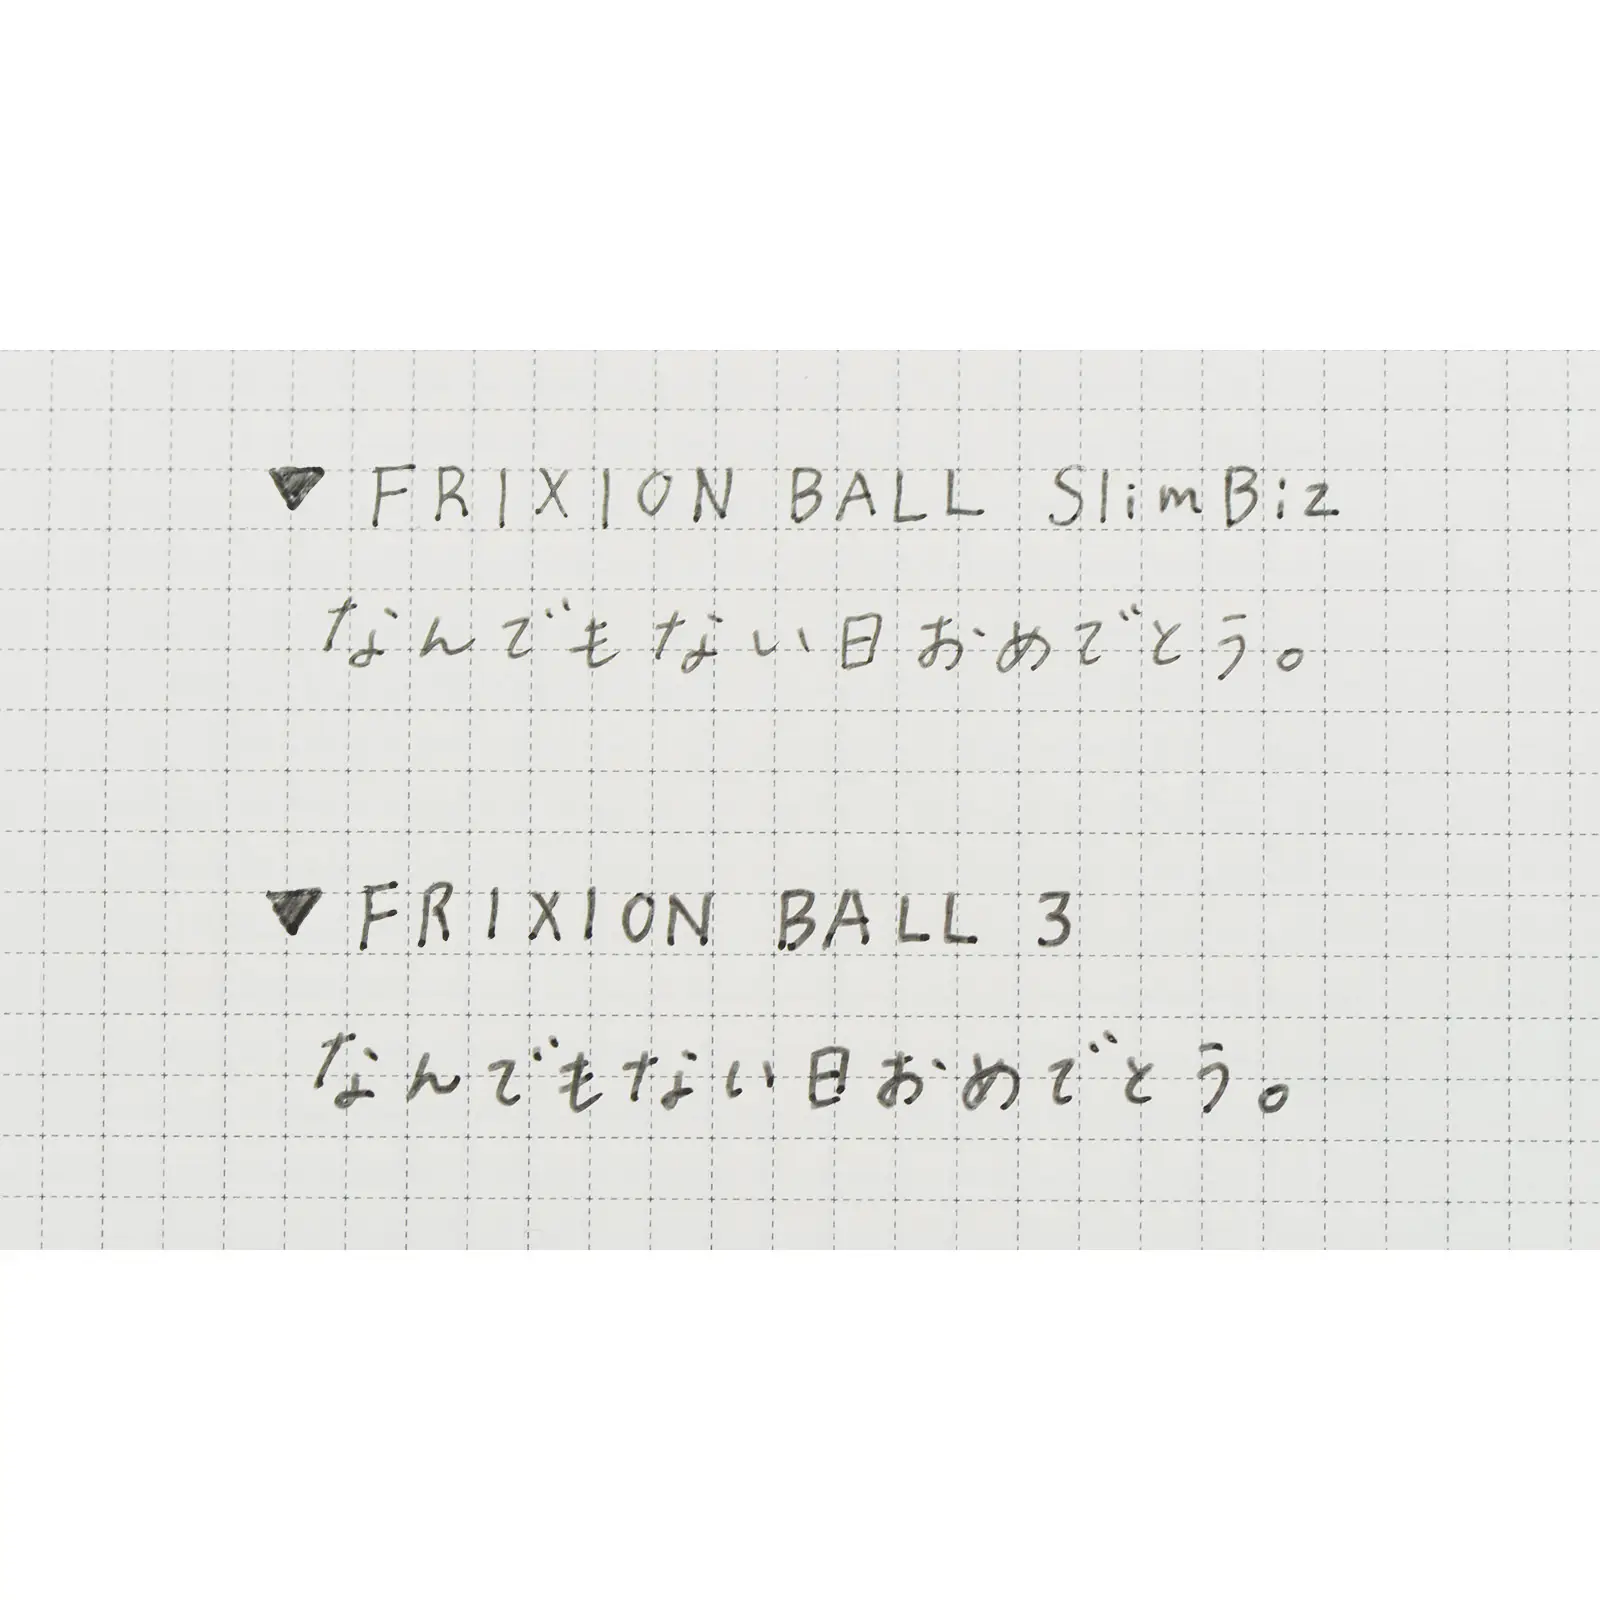 ▼ FRIXION BALL SlimBiz
なんでもない日おめでとう。
▼ FRIXION BALL 3
なんでもない日おめでとう。